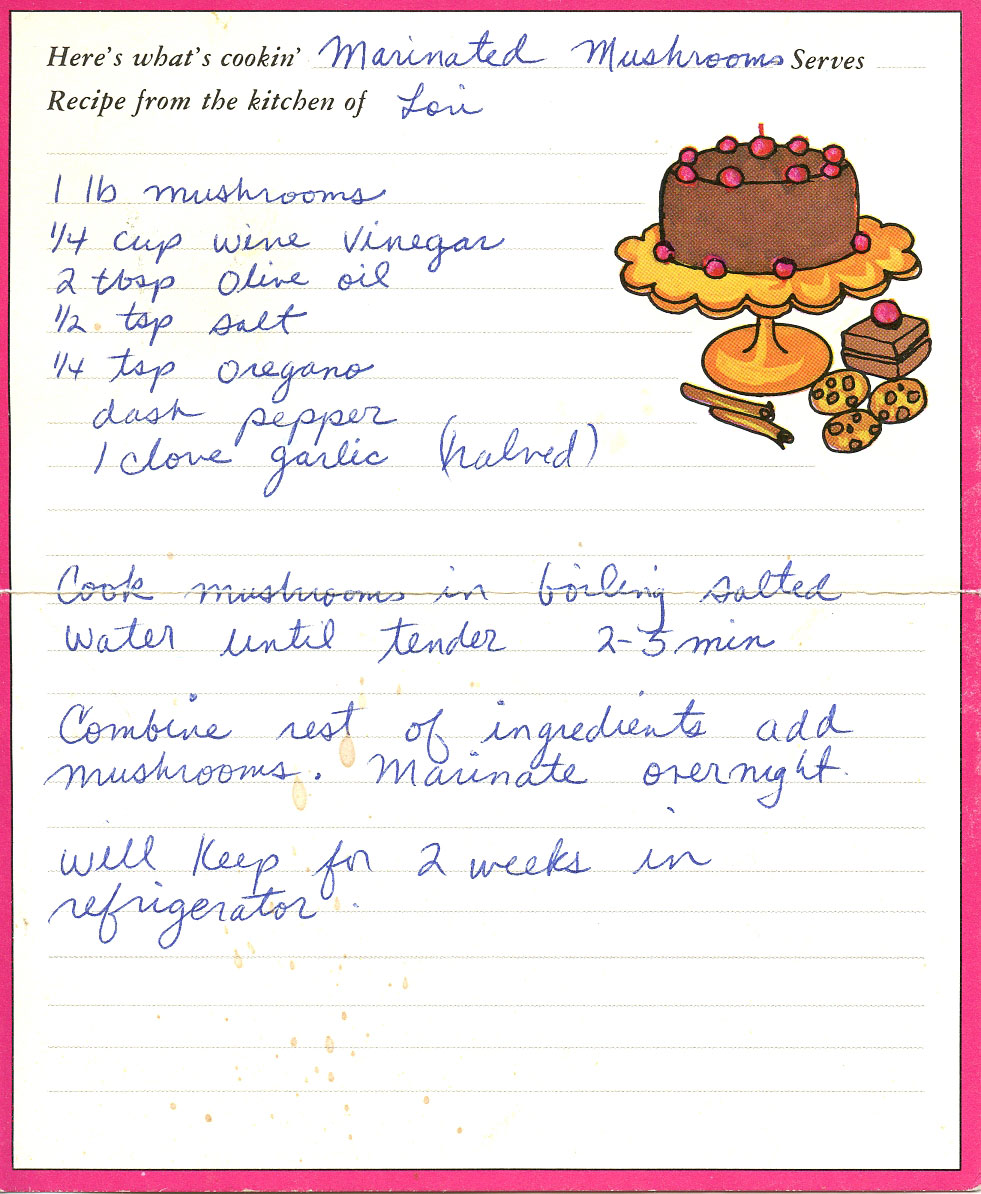 Here's what's cookin' Marinated Mushrooms Serves
Recipe from the kitchen of Lori
1 lb mushrooms
1/4 cup wine vinegar
2 tbsp Olive oil
1/2 tsp salt
1/4 tsp oregano
dash pepper
1 clove garlic (halved)
Cook mushrooms in boiling salted
water until tender 2-3 min
Combine rest of ingredients add
mushrooms. Marinate overnight.
will Keep for 2 weeks in
refrigerator.